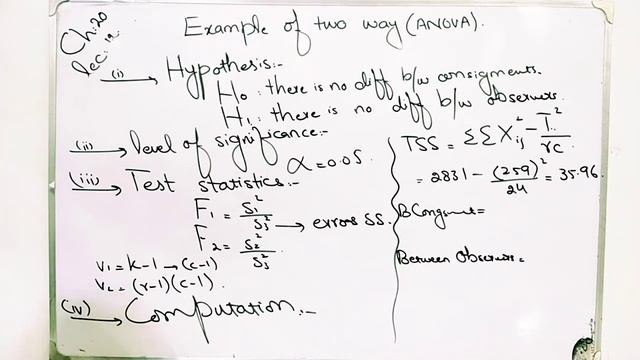 Example of two way (ANOVA).
Ch. 20
Lec. 12
(i) → Hypothesis:-
H₀ : there is no diff b/w consigments.
H₁ : there is no diff b/w observers.
(ii) → level of significance:-
α = 0.05.
(iii) → Test statistics:-
F₁ = S₁²/S₃² → errors SS.
F₂ = S₂²/S₃²
V₁ = k-1 → (c-1)
V₂ = (r-1)(c-1).
(iv) → Computation:-
TSS = ΣΣX²ij - T..²/rc
= 2831 - (259)²/24 = 35.96.
B Congments =
Between Observers =